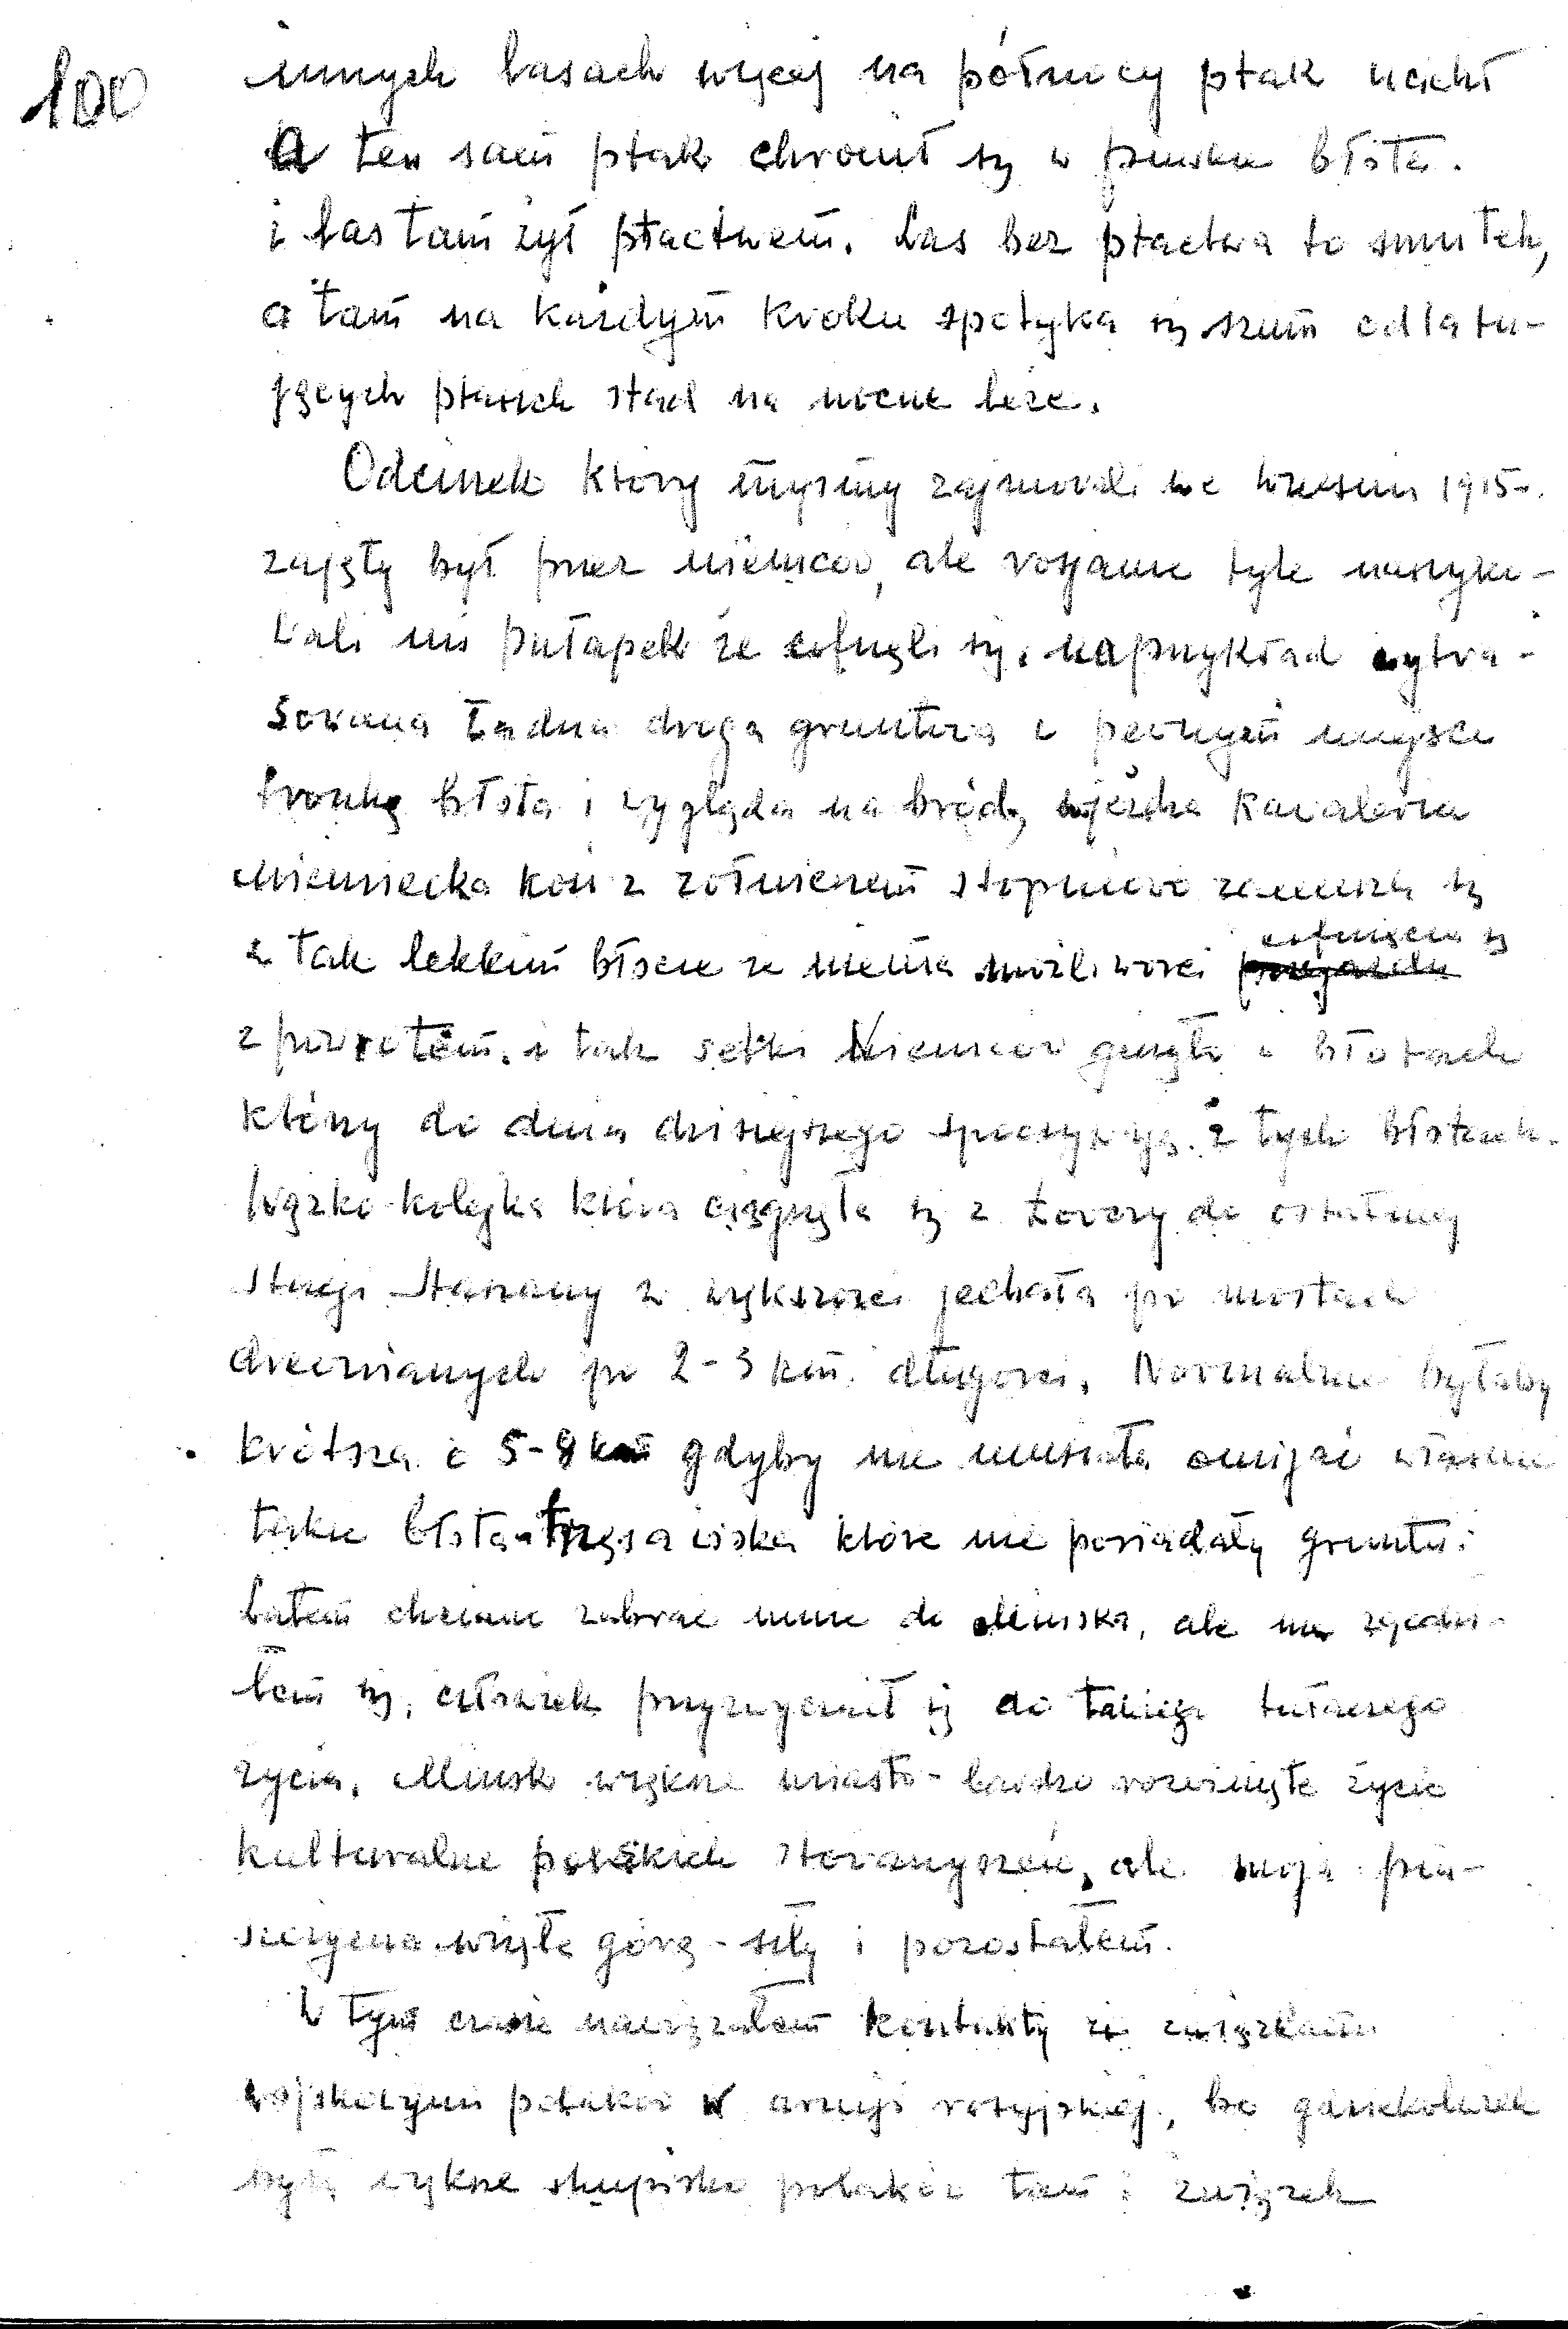 100
innych lasach więcej na północy ptak ucichł
a ten sam ptak chronił się w pińskie błota.
i las tam żył ptactwem. Las bez ptactwa to smutek,
a tam na każdym kroku spotyka się szum odlatu-
jących ptasich stad na nocne leże.
Odcinek który myśmy zajmowali we wrześniu 1915 r.
zajęty był przez niemców, ale rosjanie tyle naszyko-
wali im pułapek że cofnęli się, naprzykład wytra-
sowana ładna droga gruntowa w pewnym miejscu
troszkę błota i wygląda na bród, wjeżdża kawaleria
Niemiecka koń z żołnierzem stopniowo zanurza się
w tak lekkim błocie że niema możliwości cofnięcia się
z powrotem. i tak setki Niemców ginęło w błotach
którzy do dnia dzisiejszego spoczywają w tych błotach.
Wązko-kolejka która ciągnęła się z Łowczy do ostatniej
stacji w większości jechała po mostach
drewnianych po 2-3 km. długości. Normalnie byłaby
krótsza o 5-8 km gdyby nie musiała omijać właśnie
takie błota-trzęsawiska które nie posiadały gruntu.
Latem chciano zabrać mnie do Mińska, ale nie zgodzi-
łem się, człowiek przyzwyczaił się do takiego tułaczego
życia. Mińsk większe miasto - bardzo rozwinięte życie
kulturalne polskich stowarzyszeń, ale moja piń-
szczyzna wzięła górę - siły i pozostałem.
W tym czasie nawiązałem kontakty ze związkami
wojskowymi polaków w armji rosyjskiej, bo gdziekolwiek
były większe skupiska polaków tam i związek